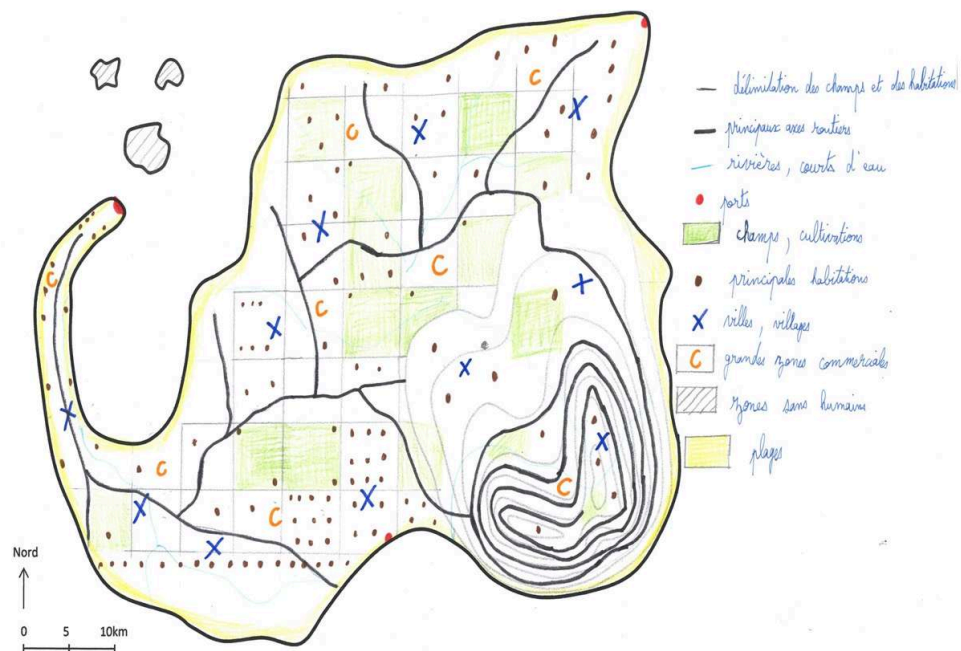 délimitation des champs et des habitations
principaux axes routiers
rivières, courts d'eau
ports
champs, cultivations
principales habitations
villes, villages
C grandes zones commerciales
zones sans humains
plages
C
C
C
C
C
C
C
C
C
Nord
0 5 10km